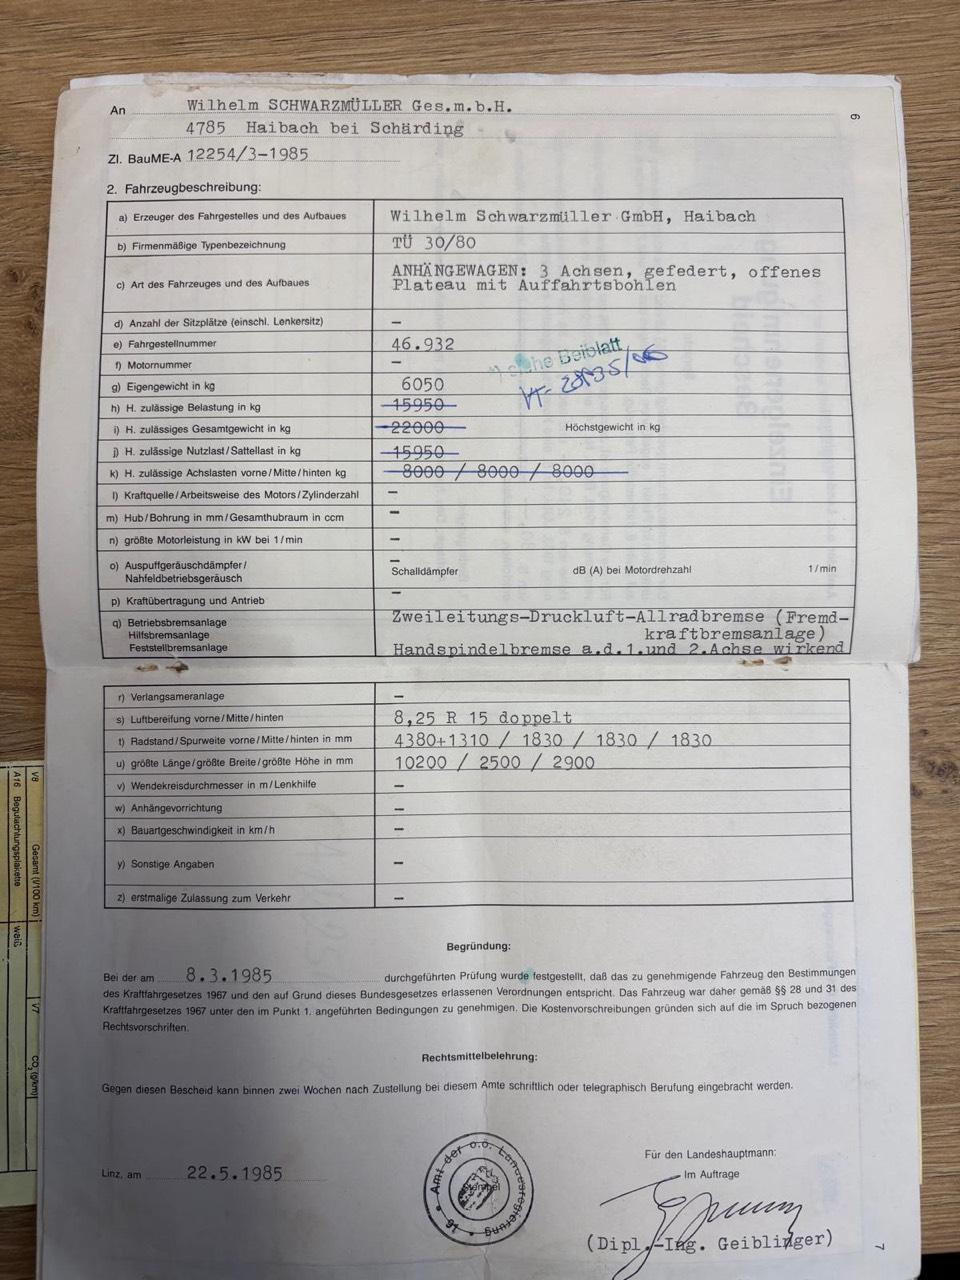 6
An Wilhelm SCHWARZMÜLLER Ges.m.b.H.
4785 Haibach bei Schärding
Zl. BauME-A 12254/3-1985
2. Fahrzeugbeschreibung:
a) Erzeuger des Fahrgestelles und des Aufbaues Wilhelm Schwarzmüller GmbH, Haibach
b) Firmenmäßige Typenbezeichnung TÜ 30/80
c) Art des Fahrzeuges und des Aufbaues ANHÄNGEWAGEN: 3 Achsen, gefedert, offenes
Plateau mit Auffahrtsbohlen
d) Anzahl der Sitzplätze (einschl. Lenkersitz) —
e) Fahrgestellnummer 46.932
f) Motornummer —
siehe Beiblatt
g) Eigengewicht in kg 6050
h) H. zulässige Belastung in kg 15950
i) H. zulässiges Gesamtgewicht in kg 22000 Höchstgewicht in kg
j) H. zulässige Nutzlast/Sattellast in kg 15950
k) H. zulässige Achslasten vorne/Mitte/hinten kg 8000 / 8000 / 8000
l) Kraftquelle/Arbeitsweise des Motors/Zylinderzahl —
m) Hub/Bohrung in mm/Gesamthubraum in ccm —
n) größte Motorleistung in kW bei 1/min —
o) Auspuffgeräuschdämpfer/ —
Nahfeldbetriebsgeräusch Schalldämpfer dB (A) bei Motordrehzahl 1/min
p) Kraftübertragung und Antrieb —
q) Betriebsbremsanlage Zweileitungs-Druckluft-Allradbremse (Fremd-
Hilfsbremsanlage kraftbremsanlage)
Feststellbremsanlage Handspindelbremse a.d.1.und 2.Achse wirkend
r) Verlangsameranlage —
s) Luftbereifung vorne/Mitte/hinten 8,25 R 15 doppelt
t) Radstand/Spurweite vorne/Mitte/hinten in mm 4380+1310 / 1830 / 1830 / 1830
u) größte Länge/größte Breite/größte Höhe in mm 10200 / 2500 / 2900
v) Wendekreisdurchmesser in m/Lenkhilfe —
w) Anhängevorrichtung —
x) Bauartgeschwindigkeit in km/h —
y) Sonstige Angaben —
z) erstmalige Zulassung zum Verkehr —
Begründung:
Bei der am 8.3.1985 durchgeführten Prüfung wurde festgestellt, daß das zu genehmigende Fahrzeug den Bestimmungen
des Kraftfahrgesetzes 1967 und den auf Grund dieses Bundesgesetzes erlassenen Verordnungen entspricht. Das Fahrzeug war daher gemäß §§ 28 und 31 des
Kraftfahrgesetzes 1967 unter den im Punkt 1. angeführten Bedingungen zu genehmigen. Die Kostenvorschreibungen gründen sich auf die im Spruch bezogenen
Rechtsvorschriften.
Rechtsmittelbelehrung:
Gegen diesen Bescheid kann binnen zwei Wochen nach Zustellung bei diesem Amte schriftlich oder telegraphisch Berufung eingebracht werden.
Für den Landeshauptmann:
Linz, am 22.5.1985
Im Auftrage
Amt der o.ö. Landesregierung
16
(Dipl.-Ing. Geiblinger)
7
V8 Gesamt (l/100 km) V7 CO₂ (g/km)
A16 Begutachtungsplakette weiß